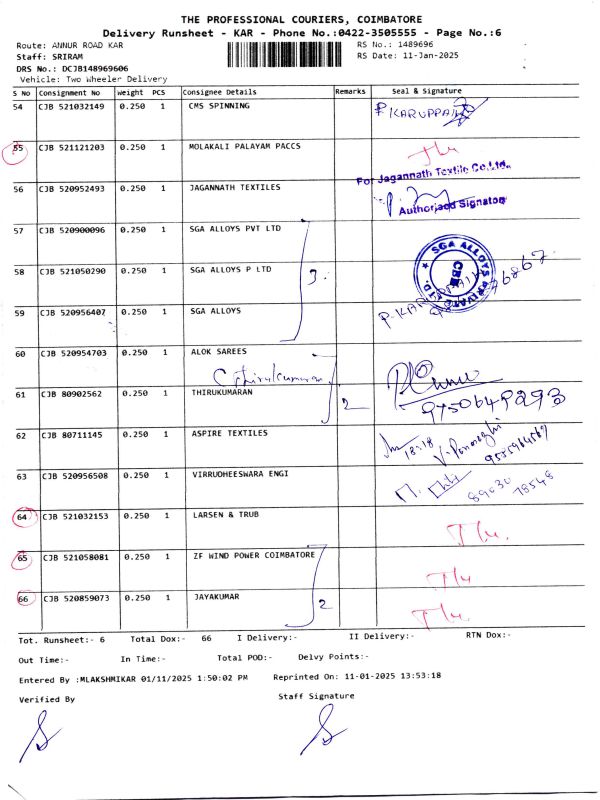 THE PROFESSIONAL COURIERS, COIMBATORE
Delivery Runsheet - KAR - Phone No.:0422-3505555 - Page No.:6
Route: ANNUR ROAD KAR RS No.: 1489696
Staff: SRIRAM RS Date: 11-Jan-2025
DRS No.: DCJB148969606
Vehicle: Two Wheeler Delivery
S No Consignment No Weight PCS Consignee Details Remarks Seal & Signature
54 CJB 521032149 0.250 1 CMS SPINNING P KARUPPAIA
55 CJB 521121203 0.250 1 MOLAKALI PALAYAM PACCS
For Jagannath Textile Co Ltd.,
56 CJB 520952493 0.250 1 JAGANNATH TEXTILES
Authorised Signatory
57 CJB 520900096 0.250 1 SGA ALLOYS PVT LTD
SGA ALLOYS PRIVATE LTD. CBE
58 CJB 521050290 0.250 1 SGA ALLOYS P LTD 3
59 CJB 520956407 0.250 1 SGA ALLOYS
60 CJB 520954703 0.250 1 ALOK SAREES
C Thirukumaran
61 CJB 80902562 0.250 1 THIRUKUMARAN 2
9750649293
62 CJB 80711145 0.250 1 ASPIRE TEXTILES 18:18
63 CJB 520956508 0.250 1 VIRRUDHEESWARA ENGI 89030 78548
64 CJB 521032153 0.250 1 LARSEN & TRUB
65 CJB 521058081 0.250 1 ZF WIND POWER COIMBATORE
66 CJB 520859073 0.250 1 JAYAKUMAR 2
Tot. Runsheet:- 6 Total Dox:- 66 I Delivery:- II Delivery:- RTN Dox:-
Out Time:- In Time:- Total POD:- Delvy Points:-
Entered By :MLAKSHMIKAR 01/11/2025 1:50:02 PM Reprinted On: 11-01-2025 13:53:18
Verified By Staff Signature